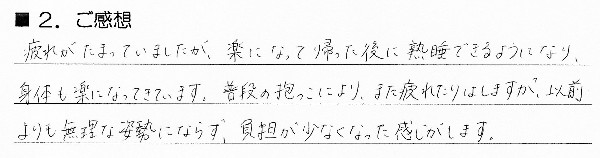 ■ 2. ご感想
疲れがたまっていましたが、楽になって帰った後に熟睡できるようになり、
身体も楽になってきています。普段の抱っこにより、また疲れたりはしますが、以前
よりも無理な姿勢にならず、負担が少なくなった感じがします。